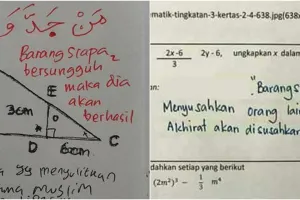 مَنْ جَدَّ وَ
Barang siapa
bersungguh
maka dia
akan
berhasil
E
3cm
D
6cm
C
yg menyulitkan
muslim
matik-tingkatan-3-kertas-2-4-638.jpg(638x
2x-6
3
2y - 6, ungkapkan x dalam
Barang s
Menyusahkan orang lain
Akhirat akan disusahkan
dahkan setiap yang berikut
(2m²)³ - 1/3 m⁴